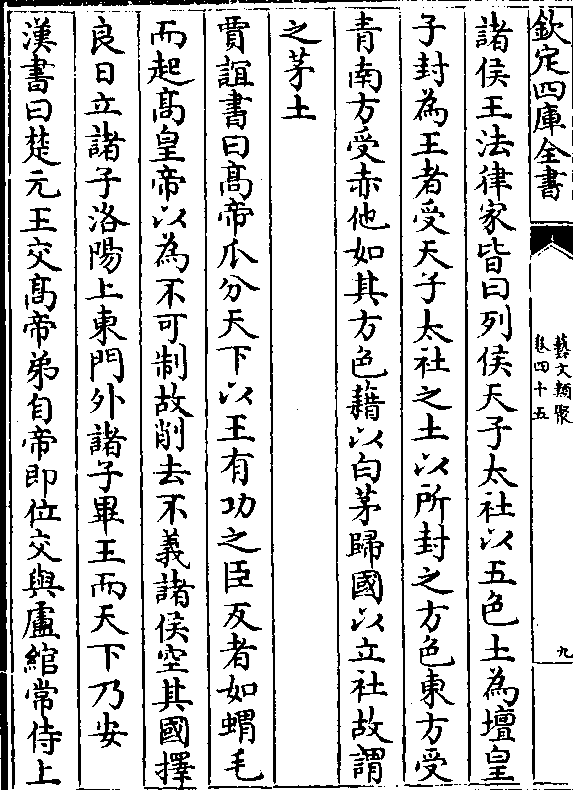 欽定四庫全書
藝文類聚
卷四十五
九
諸侯王法律家皆曰列侯天子太社以五色土為壇皇
子封為王者受天子太社之土以所封之方色東方受
青南方受赤他如其方色藉以白茅歸國以立社故謂
之茅土
賈誼書曰髙帝瓜分天下以王有功之臣反者如蝟毛
而起髙皇帝以為不可制故削去不義諸侯空其國擇
良日立諸子洛陽上東門外諸子畢王而天下乃安
漢書曰楚元王交髙帝弟自帝即位交與盧綰常侍上